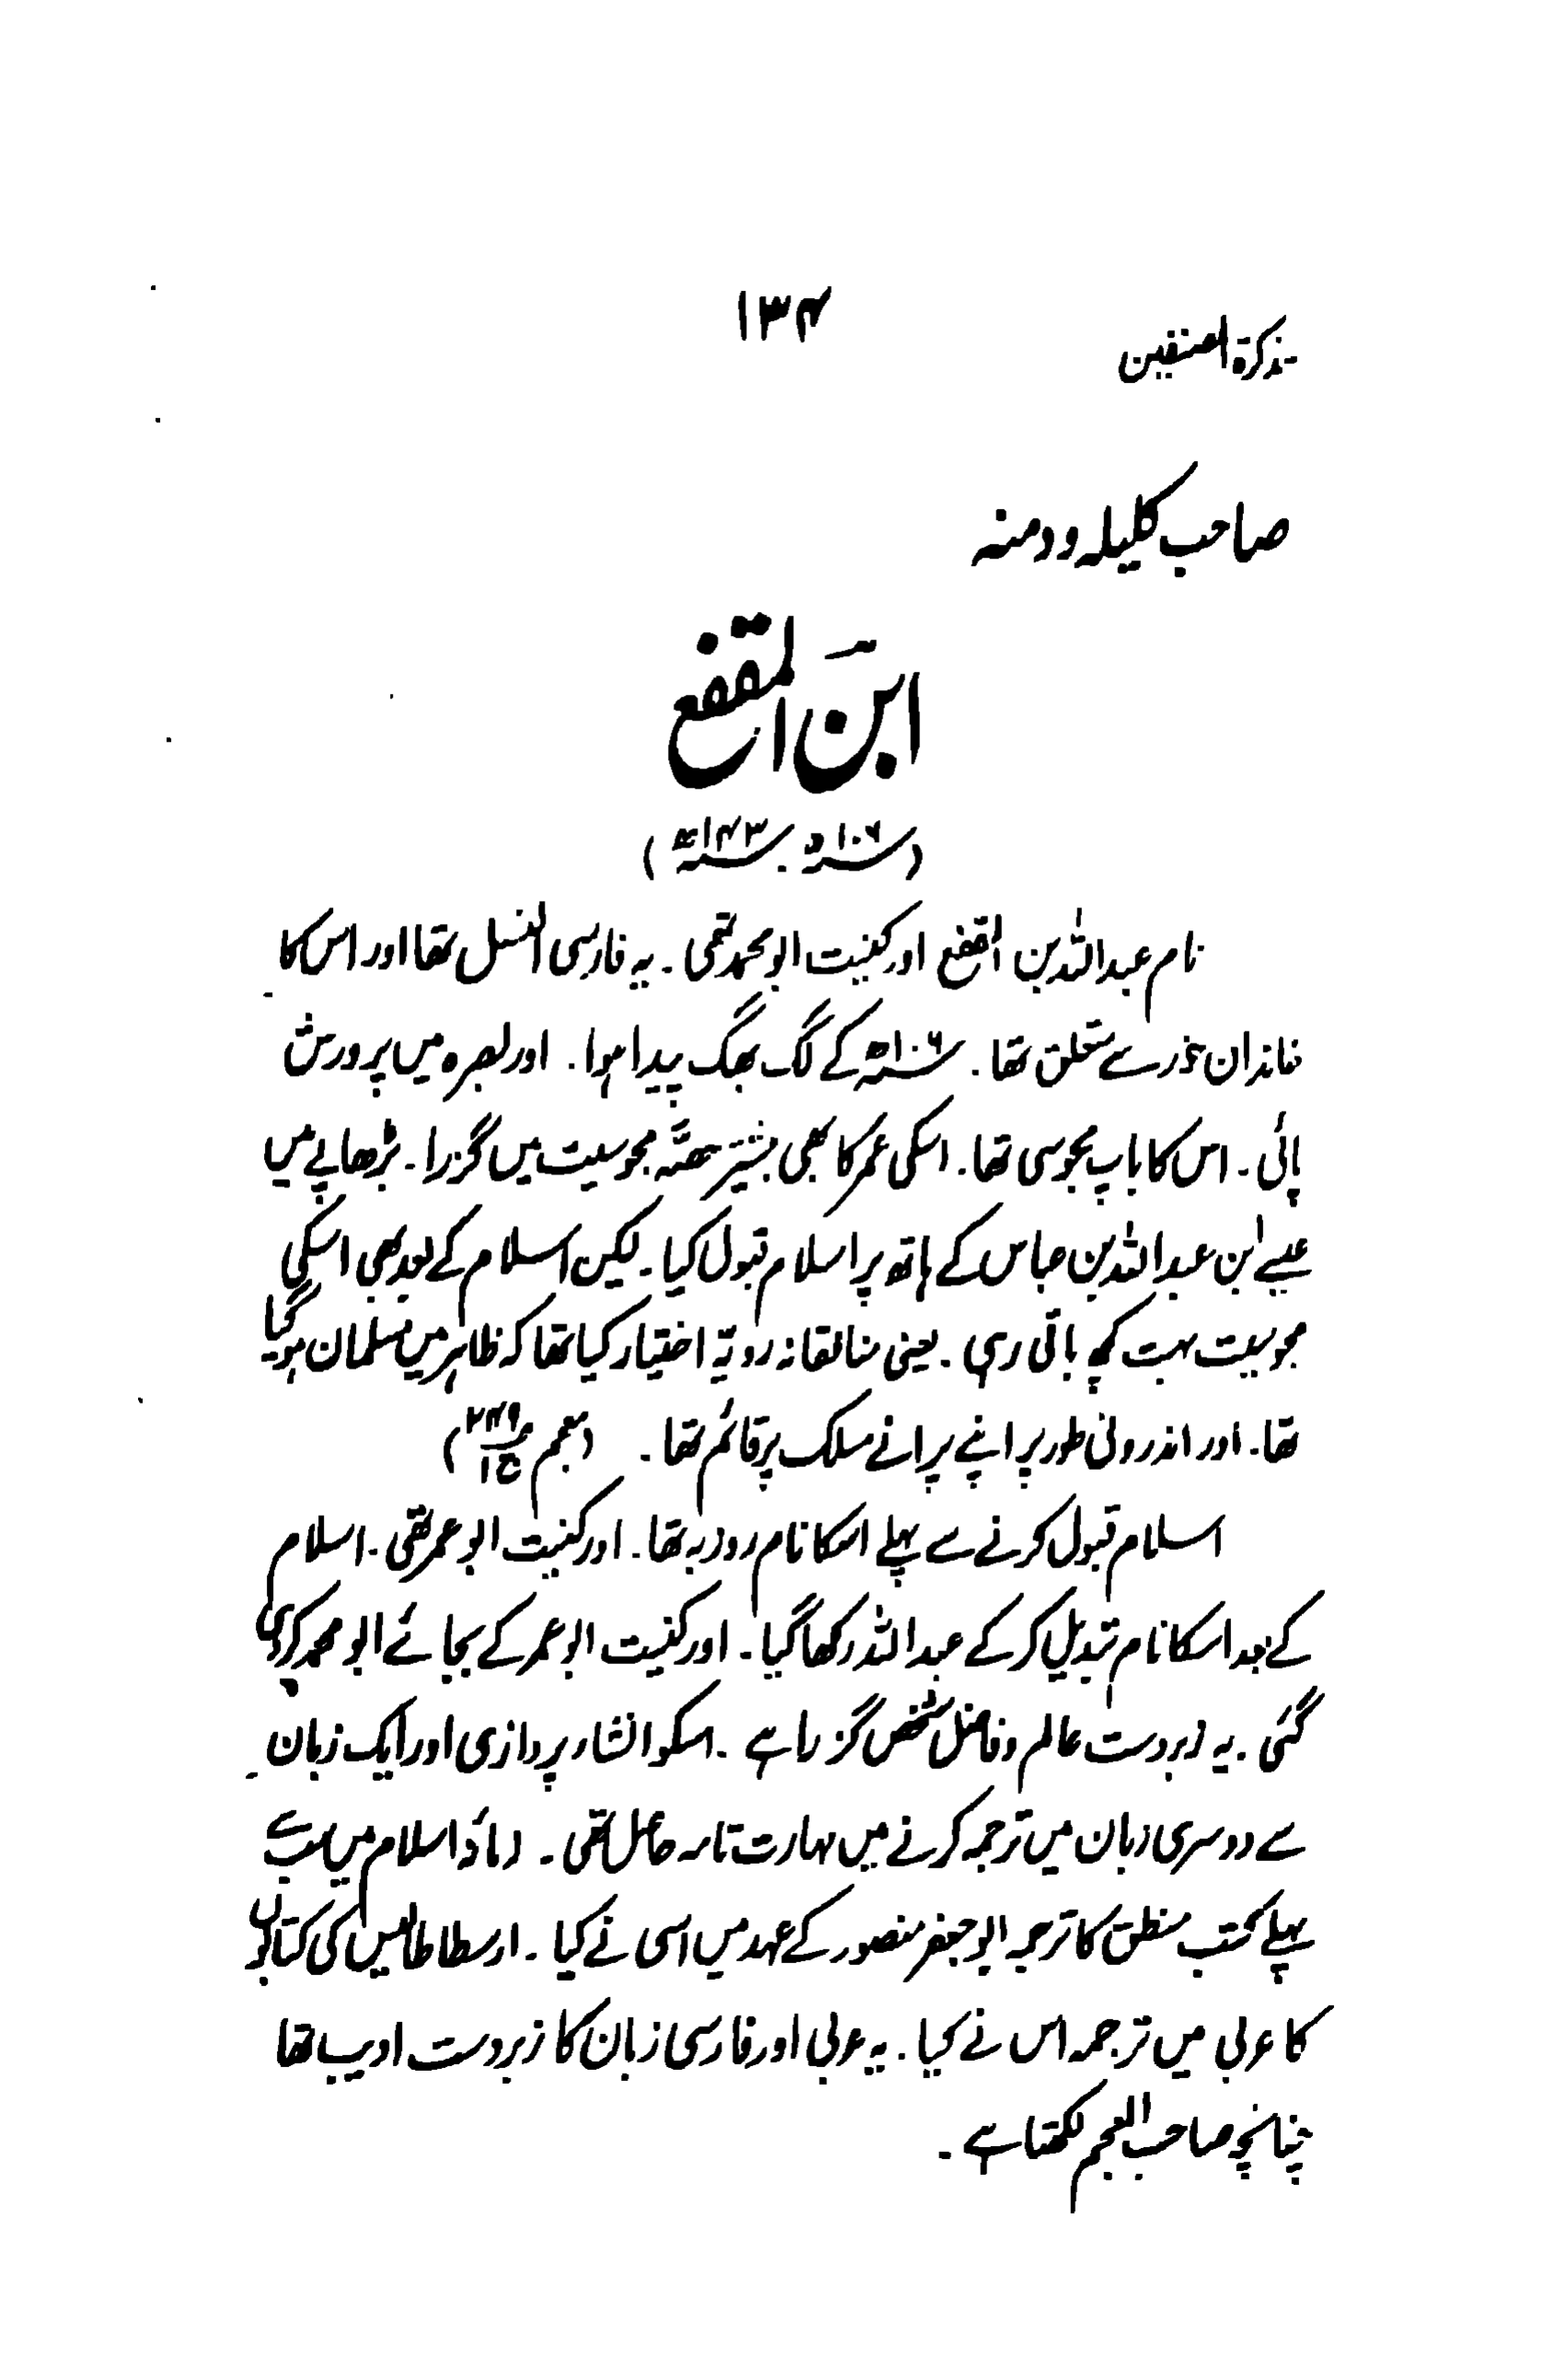 ۱۳۴
تذکرۃ المصنفین
صاحب کلیلہ ودمنہ
ابن المقفع
(سنہ ۱۰۶ھ۔ سنہ ۱۴۳ھ)
نام عبداللہ بن المقفع اور کنیت ابو محمد تھی۔ یہ فارسی النسل تھا اور اس کا
خاندان خزر سے متعلق تھا۔ سنہ ۱۰۶ھ کے لگ بھگ پیدا ہوا۔ اور بصرہ میں پرورش
پائی۔ اس کا باپ مجوسی تھا۔ اسکی عمر کا بھی بیشتر حصہ مجوسیت میں گزرا۔ بڑھاپے میں
عیسے ابن عبداللہ بن عباس کے ہاتھ پر اسلام قبول کیا۔ لیکن اسلام کے بعد بھی اسکی
مجوسیت بہت کچھ باقی رہی۔ یعنی منافقانہ رویہ اختیار کیا تھا کہ ظاہر میں مسلمان ہوگیا
تھا۔ اور اندرونی طور پر اپنے پرانے مسلک پر قائم تھا۔ (معجم ۲۴۹ ج۱)
اسلام قبول کرنے سے پہلے اسکا نام روزبہ تھا۔ اور کنیت ابو عمر تھی۔ اسلام
کے بعد اسکا نام تبدیل کر کے عبداللہ رکھا گیا۔ اور کنیت ابوعمر کے بجائے ابو محمد کردی
گئی۔ یہ زبردست عالم وفاضل شخص گزرا ہے۔ اسکو انشاء پردازی اور ایک زبان
سے دوسری زبان میں ترجمہ کرنے میں مہارت تامہ حاصل تھی۔ زمانۂ اسلام میں سب سے
پہلے کتب منطق کا ترجمہ ابوجعفر منصور کے عہد میں اسی نے کیا۔ ارسطاطالیس کی کتابوں
کا عربی میں ترجمہ اس نے کیا۔ یہ عربی اور فارسی زبان کا زبردست ادیب تھا
چنانچہ صاحب المعجم لکھتا ہے۔